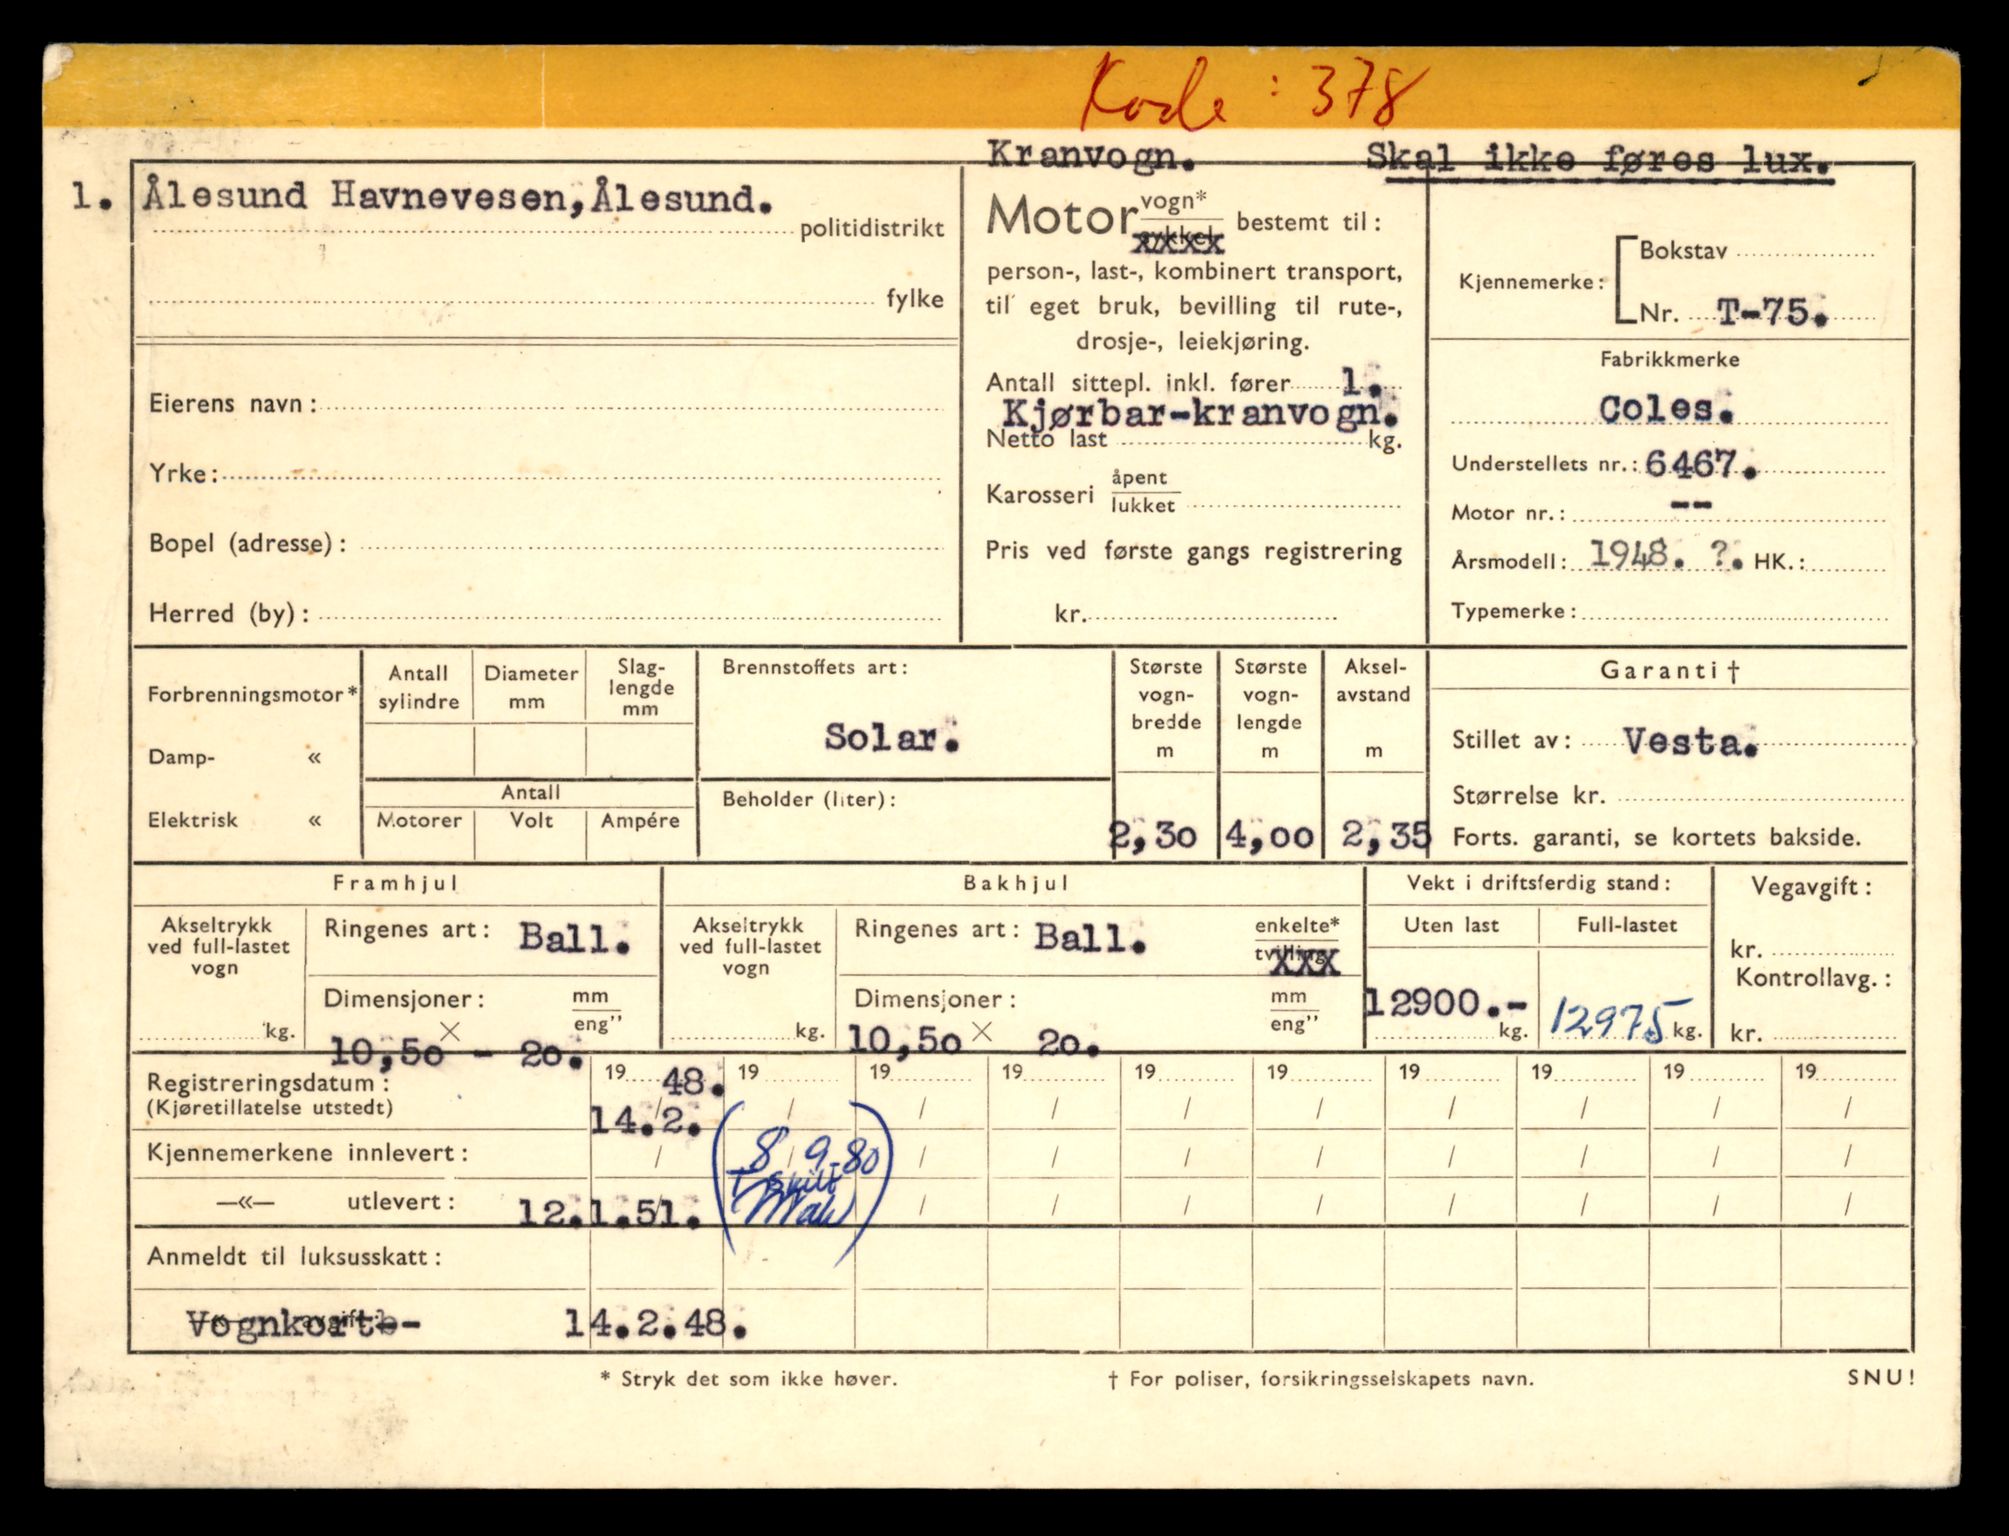 Kode : 378
Kranvogn. Skal ikke føres lux.
1. Ålesund Havnevesen, Ålesund.
politidistrikt
fylke
Eierens navn:
Yrke:
Bopel (adresse):
Herred (by):
Motor vogn* bestemt til:
person-, last-, kombinert transport,
til eget bruk, bevilling til rute-,
drosje-, leiekjøring.
Antall sittepl. inkl. fører 1.
Kjørbar-kranvogn.
Netto last kg.
Karosseri åpent
lukket
Pris ved første gangs registrering
kr.
Kjennemerke: Bokstav
Nr. T-75.
Fabrikkmerke
Coles.
Understellets nr.: 6467.
Motor nr.: --
Årsmodell: 1948. ?. HK.:
Typemerke:
Forbrenningsmotor*
Damp- «
Elektrisk «
Antall sylindre
Diameter mm
Slag-
lengde
mm
Antall
Motorer Volt Ampére
Brennstoffets art:
Solar.
Beholder (liter):
Største
vogn-
bredde
m
2,30
Største
vogn-
lengde
m
4,00
Aksel-
avstand
m
2,35
Garanti †
Stillet av: Vesta.
Størrelse kr.
Forts. garanti, se kortets bakside.
Framhjul
Akseltrykk
ved full-lastet
vogn
kg.
Ringenes art: Ball.
Dimensjoner: mm
eng"
10,50 × - 20.
Bakhjul
Akseltrykk
ved full-lastet
vogn
kg.
Ringenes art: Ball. enkelte*
tvilling
XXX
Dimensjoner: mm
eng"
10,50 × 20.
Vekt i driftsferdig stand:
Uten last Full-lastet
12900.- kg. 12975 kg.
Vegavgift:
kr.
Kontrollavg.:
kr.
Registreringsdatum: 19 48. 19 19 19 19 19 19 19 19 19
(Kjøretillatelse utstedt) 14.2. / / / / / / / / /
Kjennemerkene innlevert: / (8/9-80 / / / / / / / /
—«— utlevert: 12.1.51. ) / / / / / / / /
Anmeldt til luksusskatt:
Vognkort- 14.2.48.
* Stryk det som ikke høver.
† For poliser, forsikringsselskapets navn.
SNU!